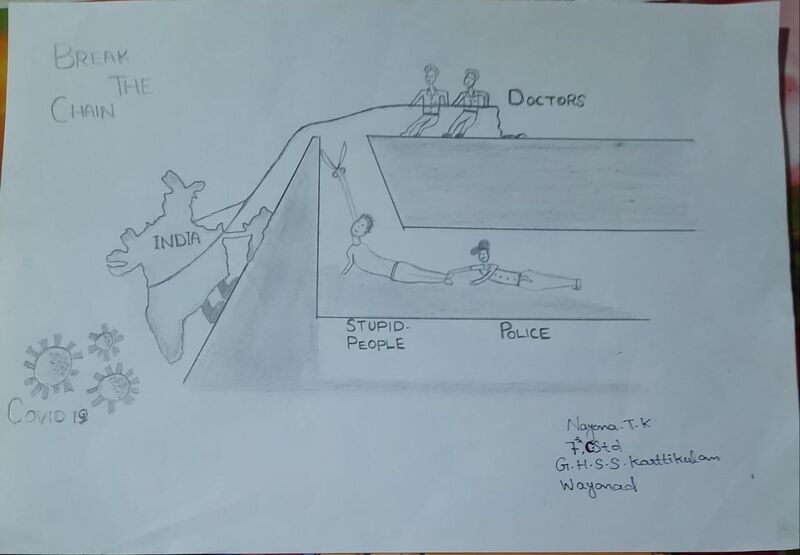 BREAK
THE
CHAIN
DOCTORS
INDIA
STUPID-
PEOPLE
POLICE
COVID 19
Nayana.T.K
7th C Std
G.H.S.S. Karttikulam
Wayanad